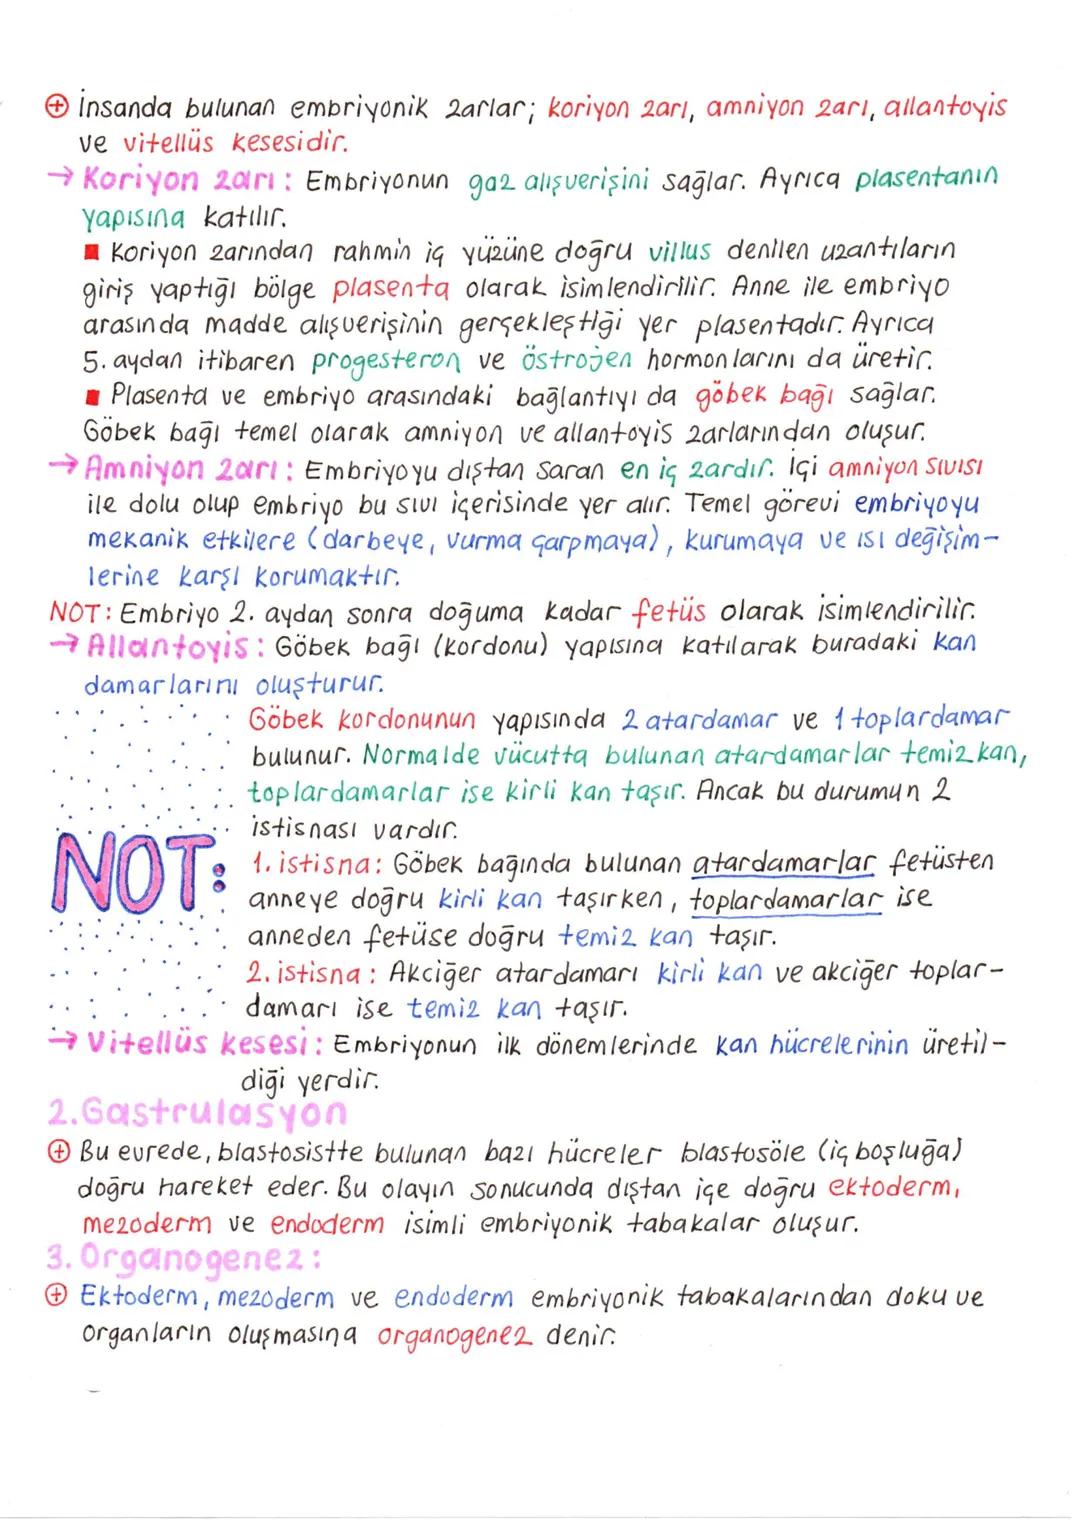 ⊕ İnsanda bulunan embriyonik zarlar; koriyon zarı, amniyon zarı, allantoyis
ve vitellüs kesesidir.
→ Koriyon zarı: Embriyonun gaz alışverişini sağlar. Ayrıca plasentanın
yapısına katılır.
■ Koriyon zarından rahmin iç yüzüne doğru villus denilen uzantıların
giriş yaptığı bölge plasenta olarak isimlendirilir. Anne ile embriyo
arasında madde alışverişinin gerçekleştiği yer plasentadır. Ayrıca
5. aydan itibaren progesteron ve östrojen hormonlarını da üretir.
■ Plasenta ve embriyo arasındaki bağlantıyı da göbek bağı sağlar.
Göbek bağı temel olarak amniyon ve allantoyis zarlarından oluşur.
→ Amniyon zarı: Embriyoyu dıştan saran en iç zardır. İçi amniyon sıvısı
ile dolu olup embriyo bu sıvı içerisinde yer alır. Temel görevi embriyoyu
mekanik etkilere (darbeye, vurma çarpmaya), kurumaya ve ısı değişim-
lerine karşı korumaktır.
NOT: Embriyo 2. aydan sonra doğuma kadar fetüs olarak isimlendirilir.
→ Allantoyis: Göbek bağı (kordonu) yapısına katılarak buradaki kan
damarlarını oluşturur.
Göbek kordonunun yapısında 2 atardamar ve 1 toplardamar
bulunur. Normalde vücutta bulunan atardamarlar temiz kan,
toplardamarlar ise kirli kan taşır. Ancak bu durumun 2
istisnası vardır.
NOT: 1. istisna: Göbek bağında bulunan atardamarlar fetüsten
anneye doğru kirli kan taşırken, toplardamarlar ise
anneden fetüse doğru temiz kan taşır.
2. istisna: Akciğer atardamarı kirli kan ve akciğer toplar-
damarı ise temiz kan taşır.
→ Vitellüs kesesi: Embriyonun ilk dönemlerinde kan hücrelerinin üretil-
diği yerdir.
2.Gastrulasyon
⊕ Bu evrede, blastosistte bulunan bazı hücreler blastosöle (iç boşluğa)
doğru hareket eder. Bu olayın sonucunda dıştan içe doğru ektoderm,
mezoderm ve endoderm isimli embriyonik tabakalar oluşur.
3. Organogenez:
⊕ Ektoderm, mezoderm ve endoderm embriyonik tabakalarından doku ve
organların oluşmasına organogenez denir.